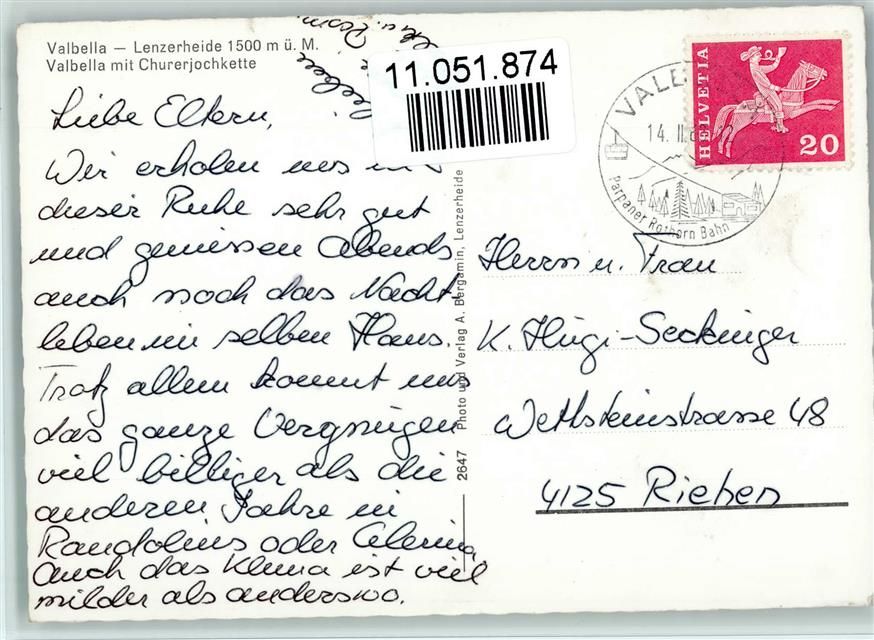 Valbella — Lenzerheide 1500 m ü. M.
Valbella mit Churerjochkette
11.051.874
Liebe Eltern,
Wir erholen uns in
dieser Ruhe sehr gut
und geniessen Abends
auch noch das Nacht-
leben im selben Haus.
Trotz allem kommt uns
das ganze Vergnügen
viel billiger als die
anderen Jahre in
oder Celerina
Auch das Klima ist viel
milder als anderswo.
2647 Photo und Verlag A. Bergamin, Lenzerheide
VALBE
14. II.
Parpaner Rothorn Bahn
HELVETIA
20
Herrn u. Frau
K. Hügi-Seckinger
Wettsteinstrasse 48
4125 Riehen